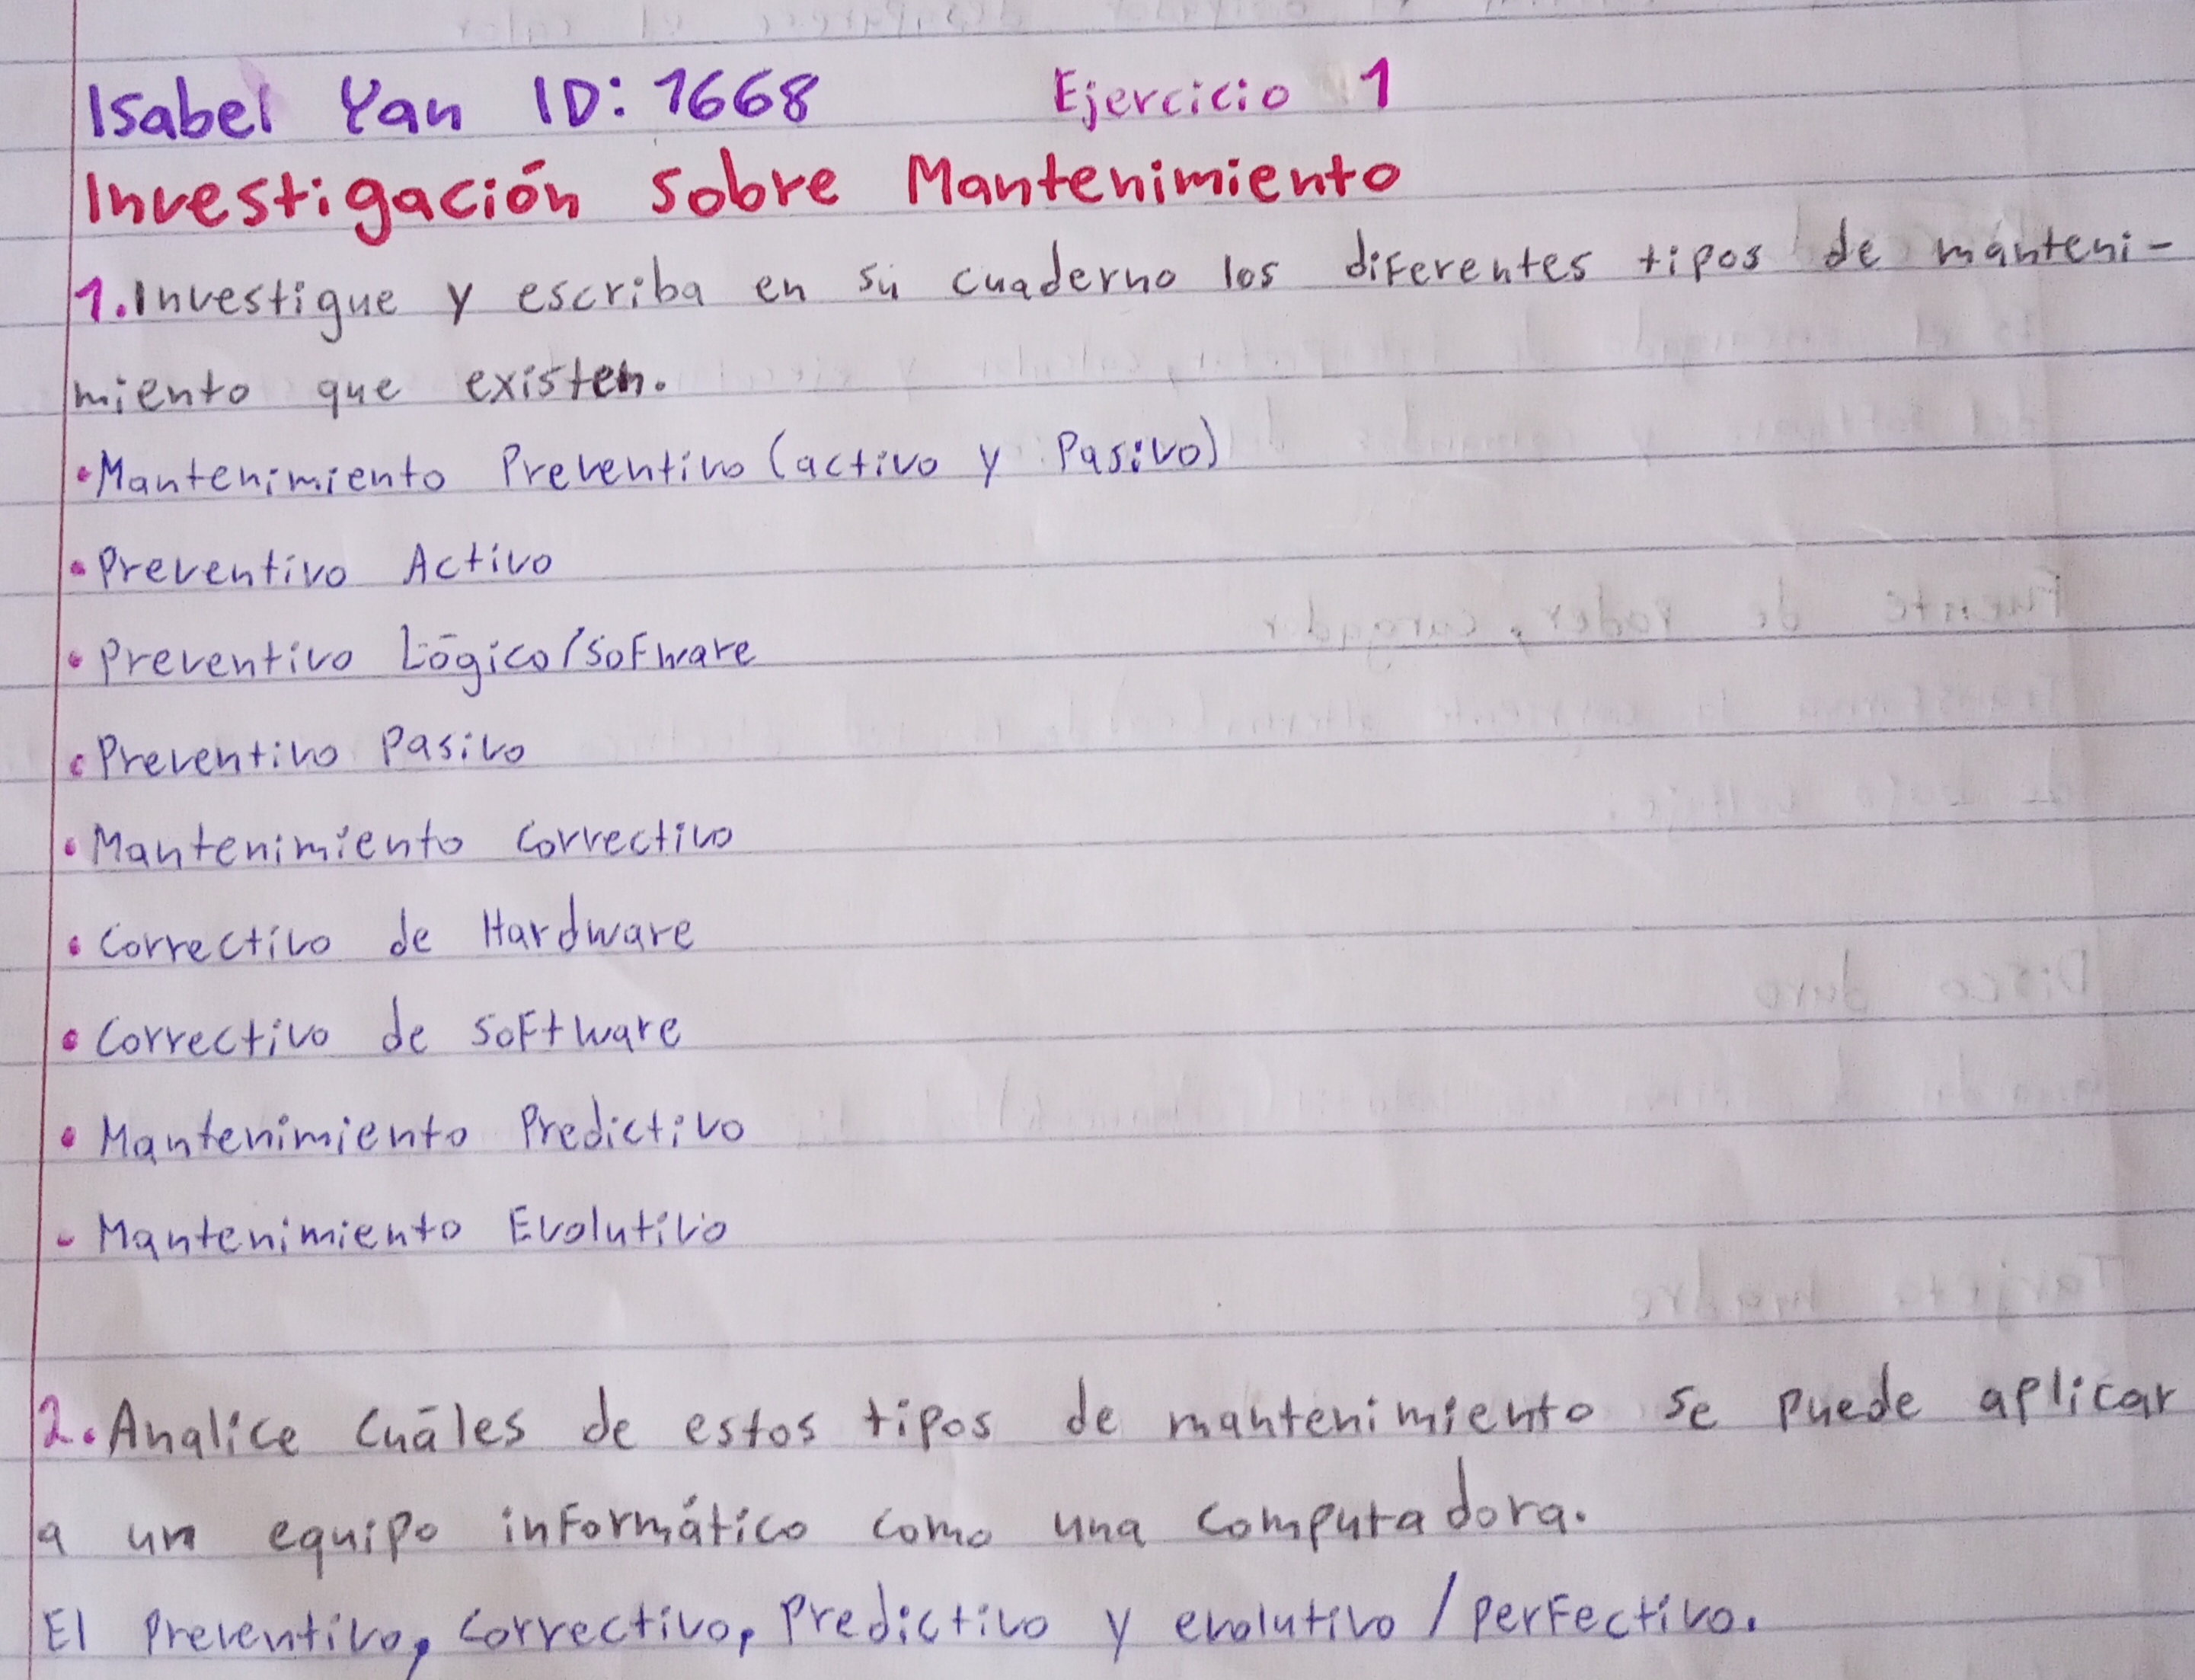 Isabel Yan ID: 1668 Ejercicio 1
Investigación sobre Mantenimiento
1. Investigue y escriba en su cuaderno los diferentes tipos de manteni-
miento que existen.
• Mantenimiento Preventivo (activo y Pasivo)
• Preventivo Activo
• Preventivo Lógico/Sofware
• Preventivo Pasivo
• Mantenimiento Correctivo
• Correctivo de Hardware
• Correctivo de Software
• Mantenimiento Predictivo
• Mantenimiento Evolutivo
2. Analice Cuáles de estos tipos de mantenimiento se puede aplicar
a un equipo informático como una computadora.
El Preventivo, Correctivo, Predictivo y evolutivo / perfectivo.